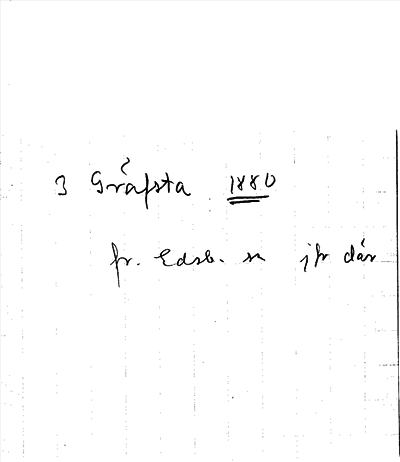 3 Gråfsta 1880
fr. Edsb. sn jfr där